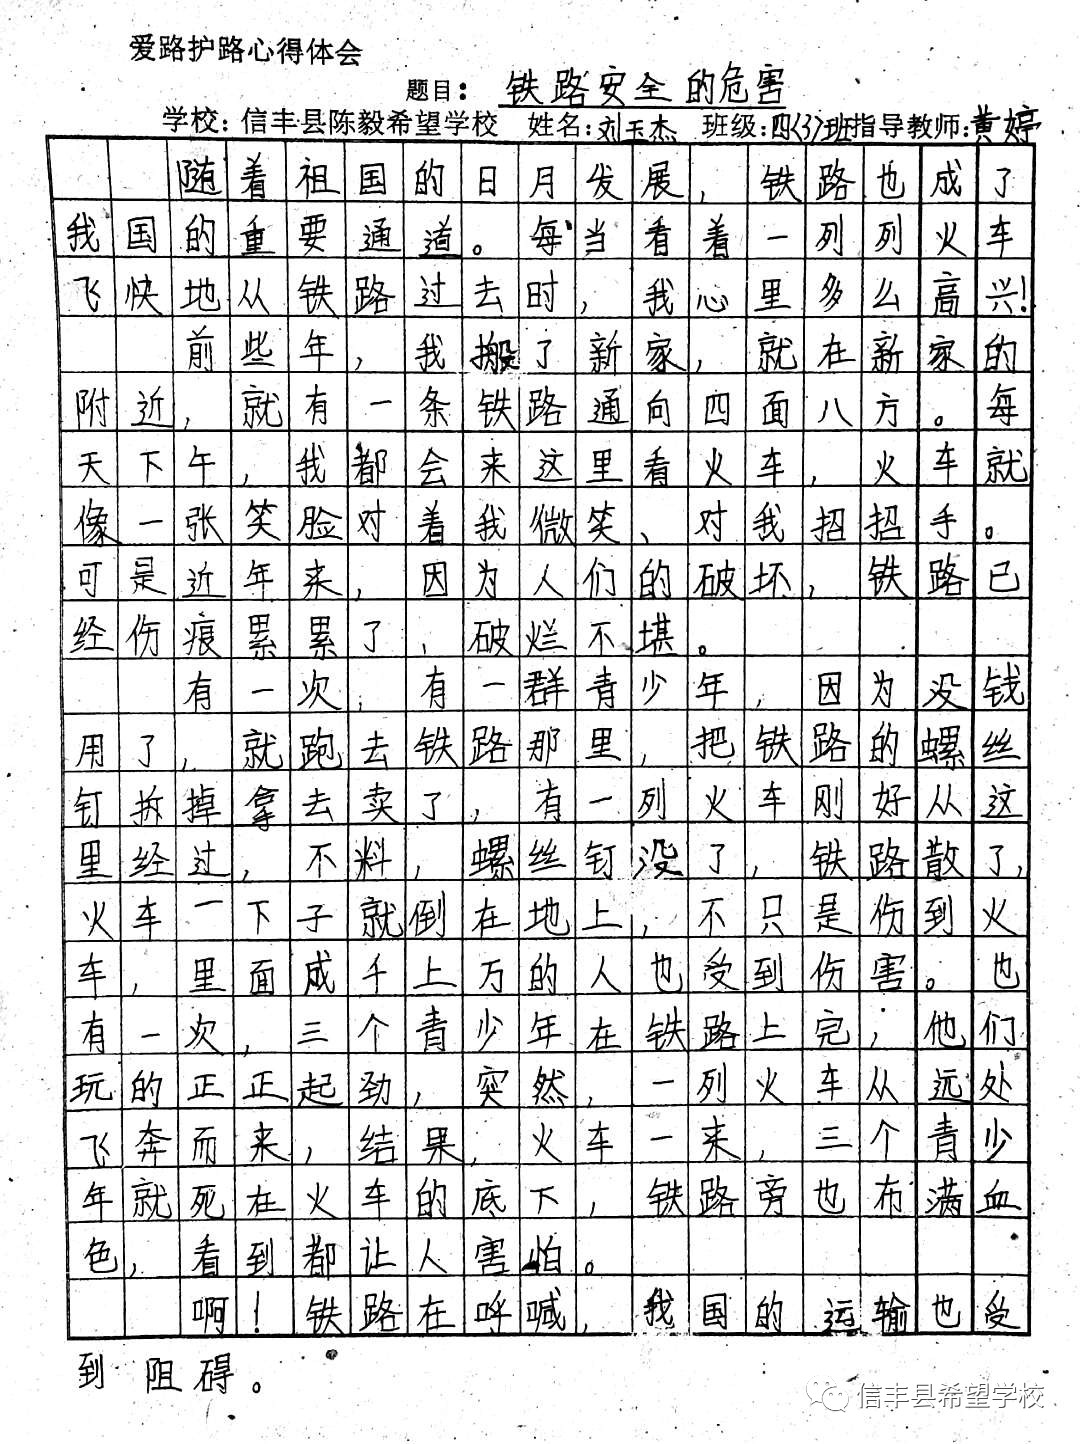 爱路护路心得体会
题目：铁路安全的危害
学校：信丰县陈毅希望学校 姓名：刘玉杰 班级：四(3)班指导教师：黄婷
随着祖国的日月发展，铁路也成了
我国的重要通道。每当看着一列列火车
飞快地从铁路过去时，我心里多么高兴！
前些年，我搬了新家，就在新家的
附近，就有一条铁路通向四面八方。每
天下午，我都会来这里看火车，火车就
像一张笑脸对着我微笑、对我招招手。
可是近年来，因为人们的破坏，铁路已
经伤痕累累了，破烂不堪。
有一次，有一群青少年，因为没钱
用了，就跑去铁路那里，把铁路的螺丝
钉拆掉拿去卖了，有一列火车刚好从这
里经过，不料，螺丝钉没了，铁路散了，
火车一下子就倒在地上，不只是伤到火
车，里面成千上万的人也受到伤害。也
有一次，三个青少年在铁路上完，他们
玩的正正起劲，突然，一列火车从远处
飞奔而来，结果，火车一来，三个青少
年就死在火车的底下，铁路旁也布满血
色，看到都让人害怕。
啊！铁路在呼喊，我国的运输也受
到阻碍。
信丰县希望学校